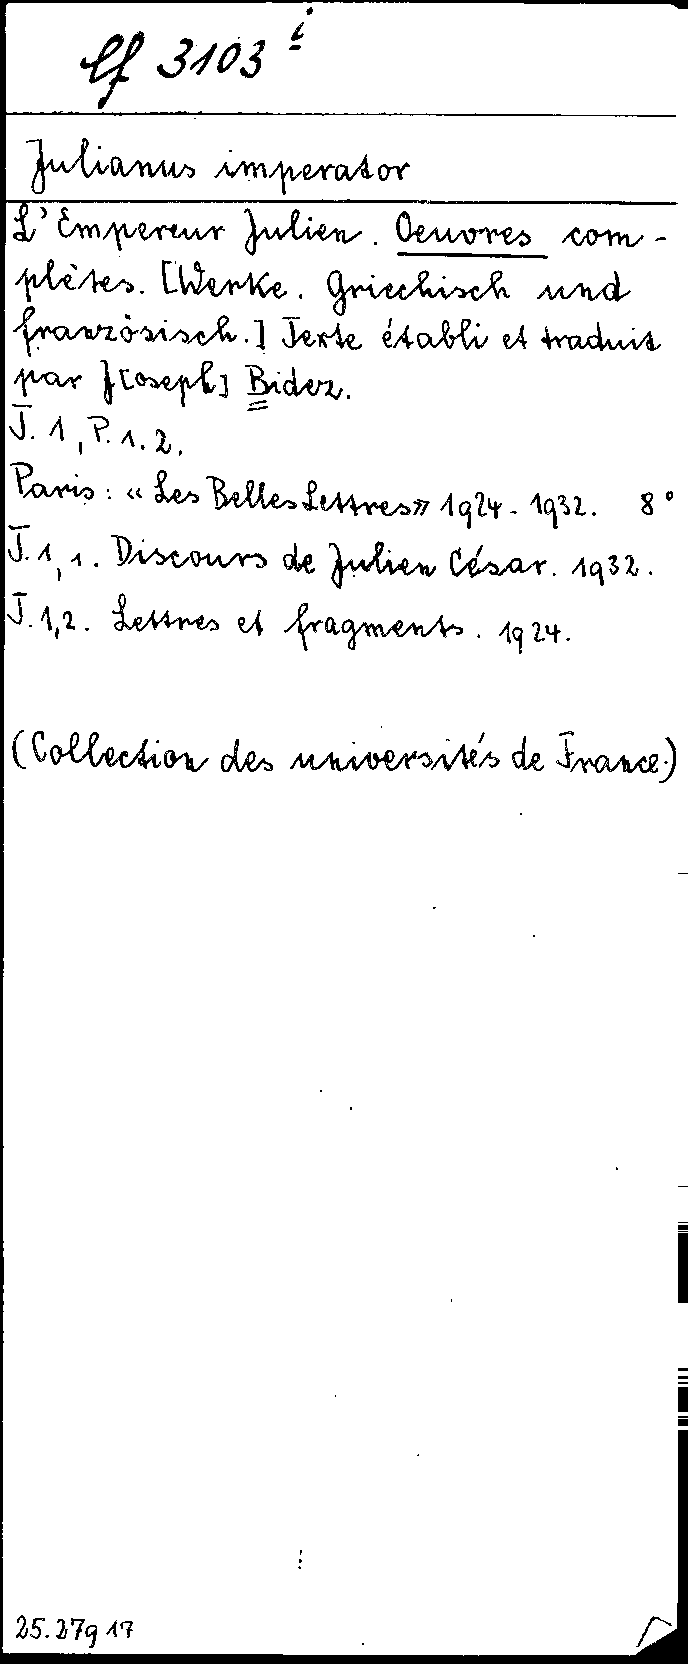 Cf 3103 i
Julianus imperator
L'Empereur Julien. Oeuvres com-
plètes. [Werke. Griechisch und
französisch.] Texte établi et traduit
par J[oseph] Bidez.
T. 1, P. 1. 2.
Paris: « Les Belles Lettres » 1924-1932. 8°
T. 1, 1. Discours de Julien César. 1932.
T. 1, 2. Lettres et fragments. 1924.
(Collection des universités de France.)
25. 279 17